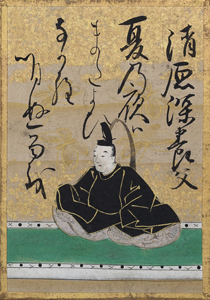 清原深養父
夏乃夜は
まだよひ
なから
明ぬるを